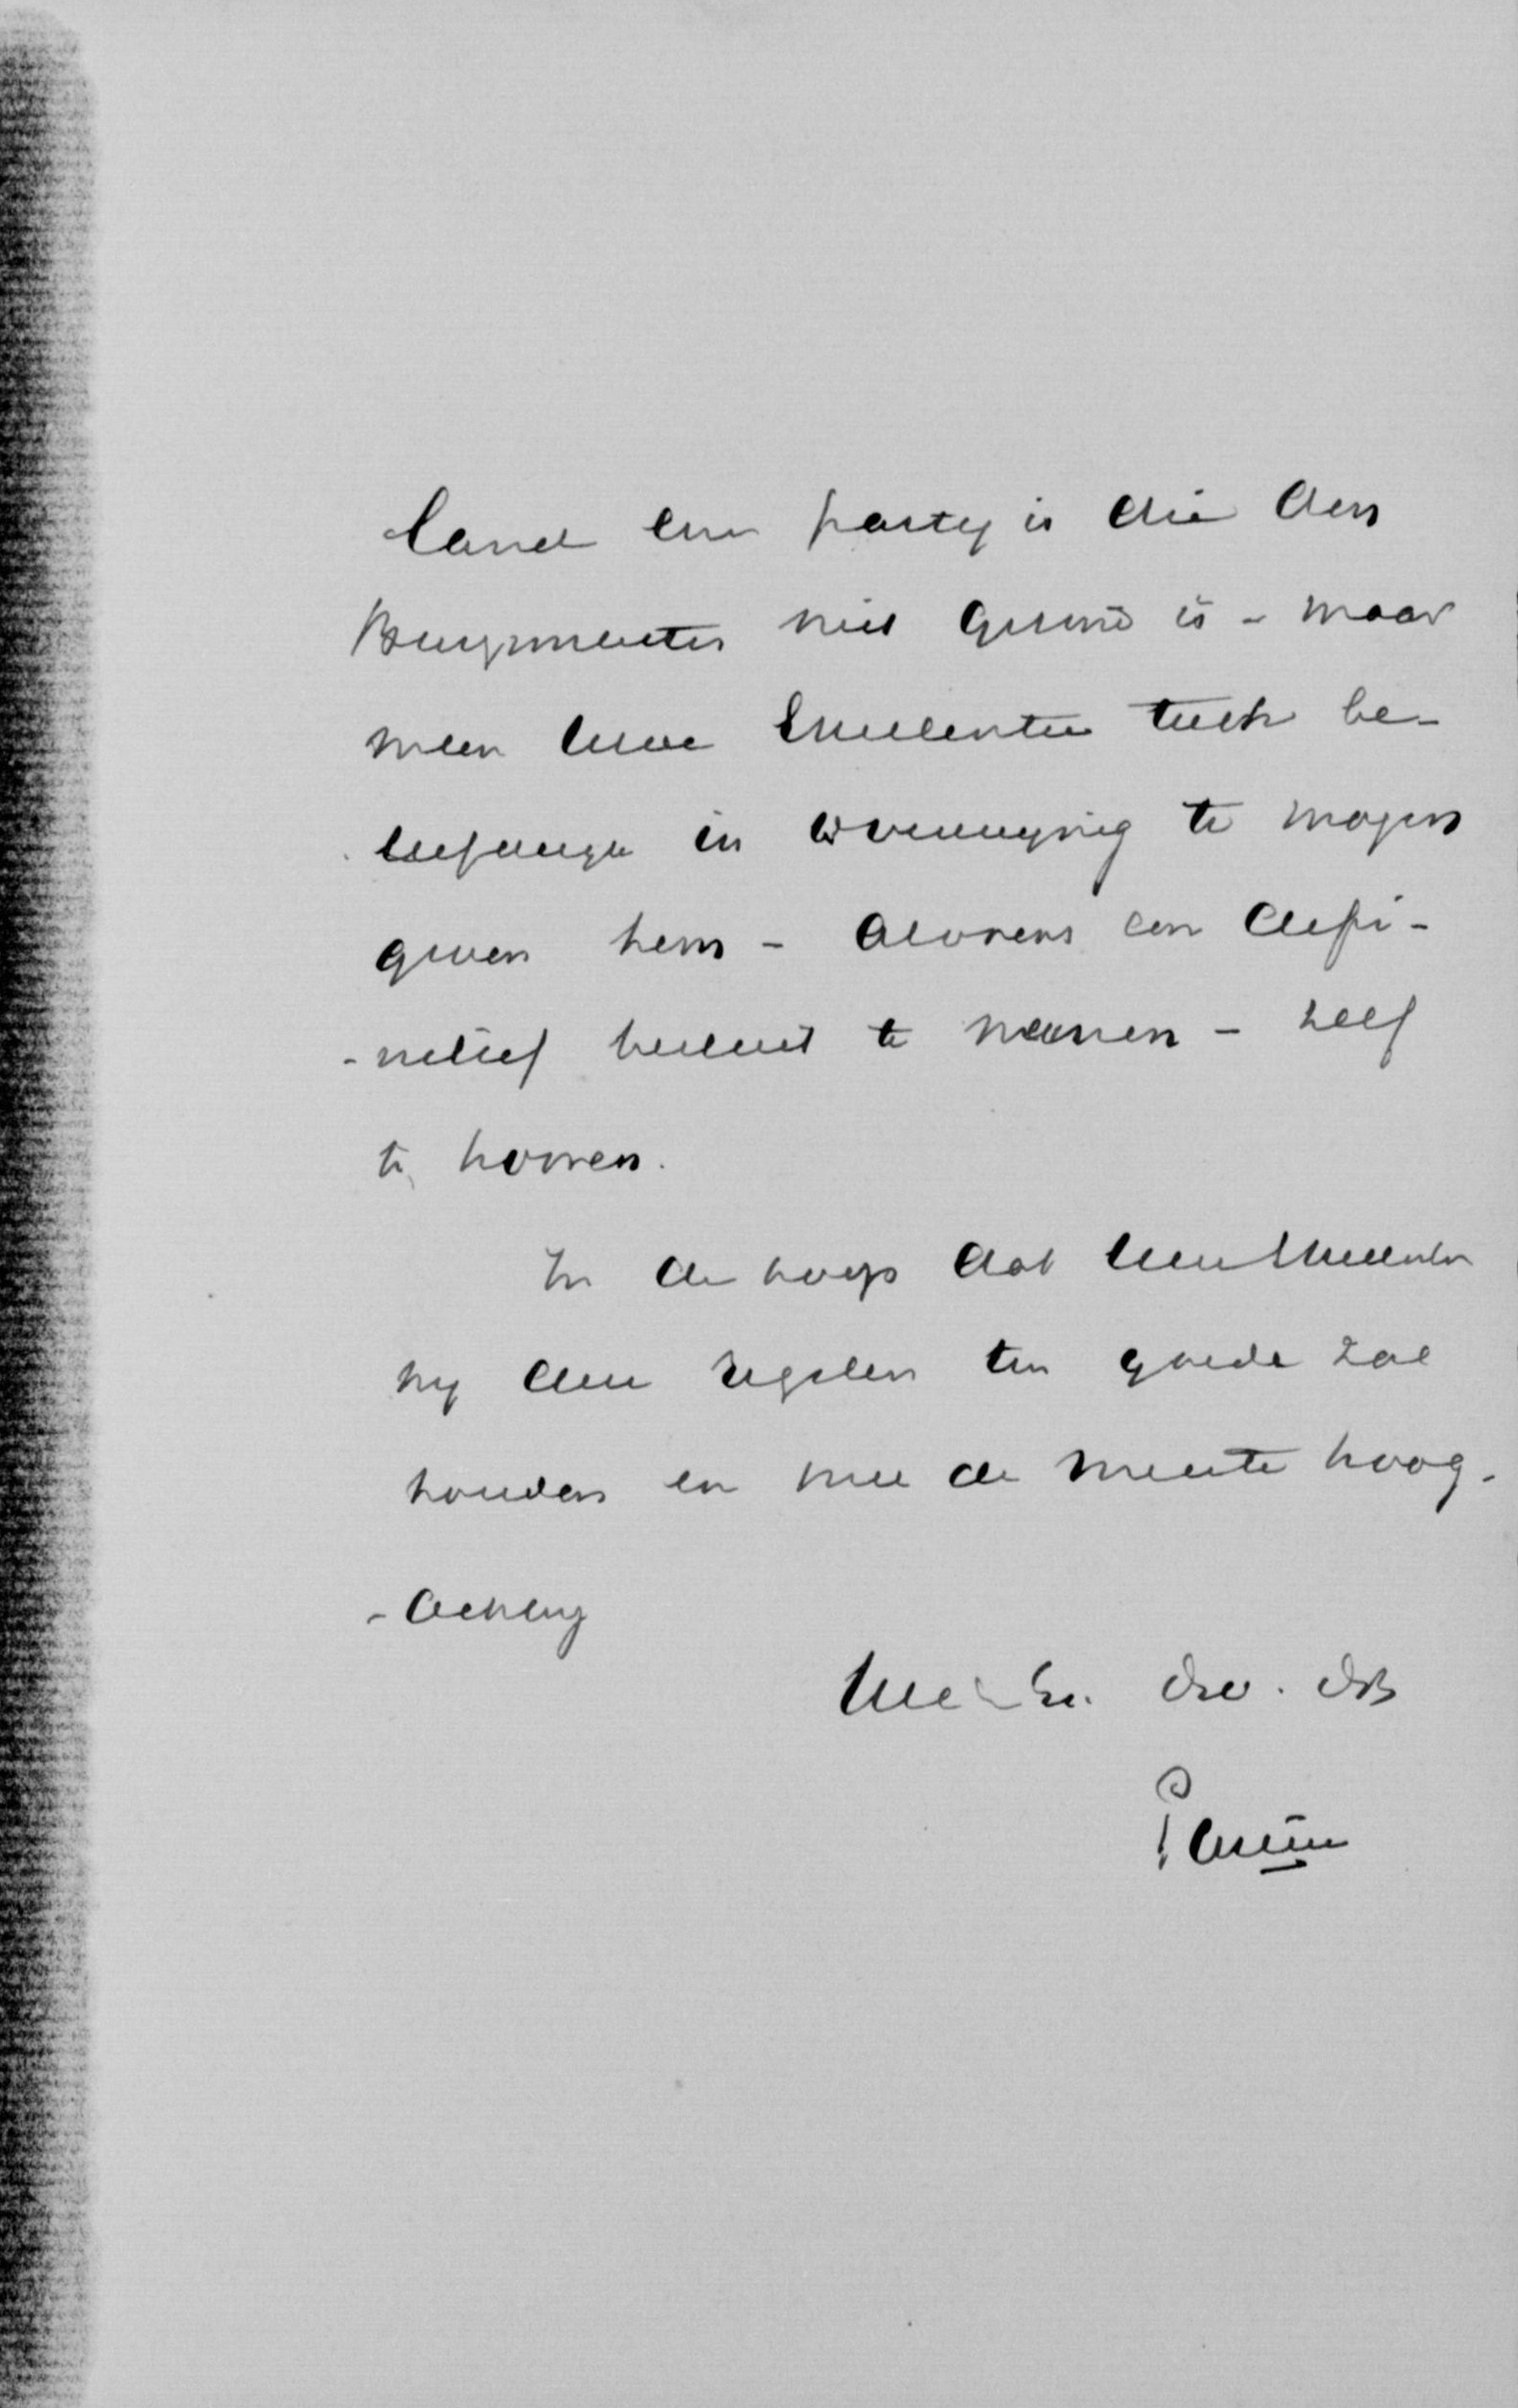 land een party is die den
Burgemeester niet gezind is - maar
meen Uwe Excellentie toch be-
leefdelyk in overweging te mogen
geven hem - alvorens een defi-
-nitief besluit te nemen - zelf
te hooren.
In de hoop dat Uwe Excellentie
my deze regelen ten goede zal
houden en met de meeste hoog-
-achting
Uwe Exc. dw. dr